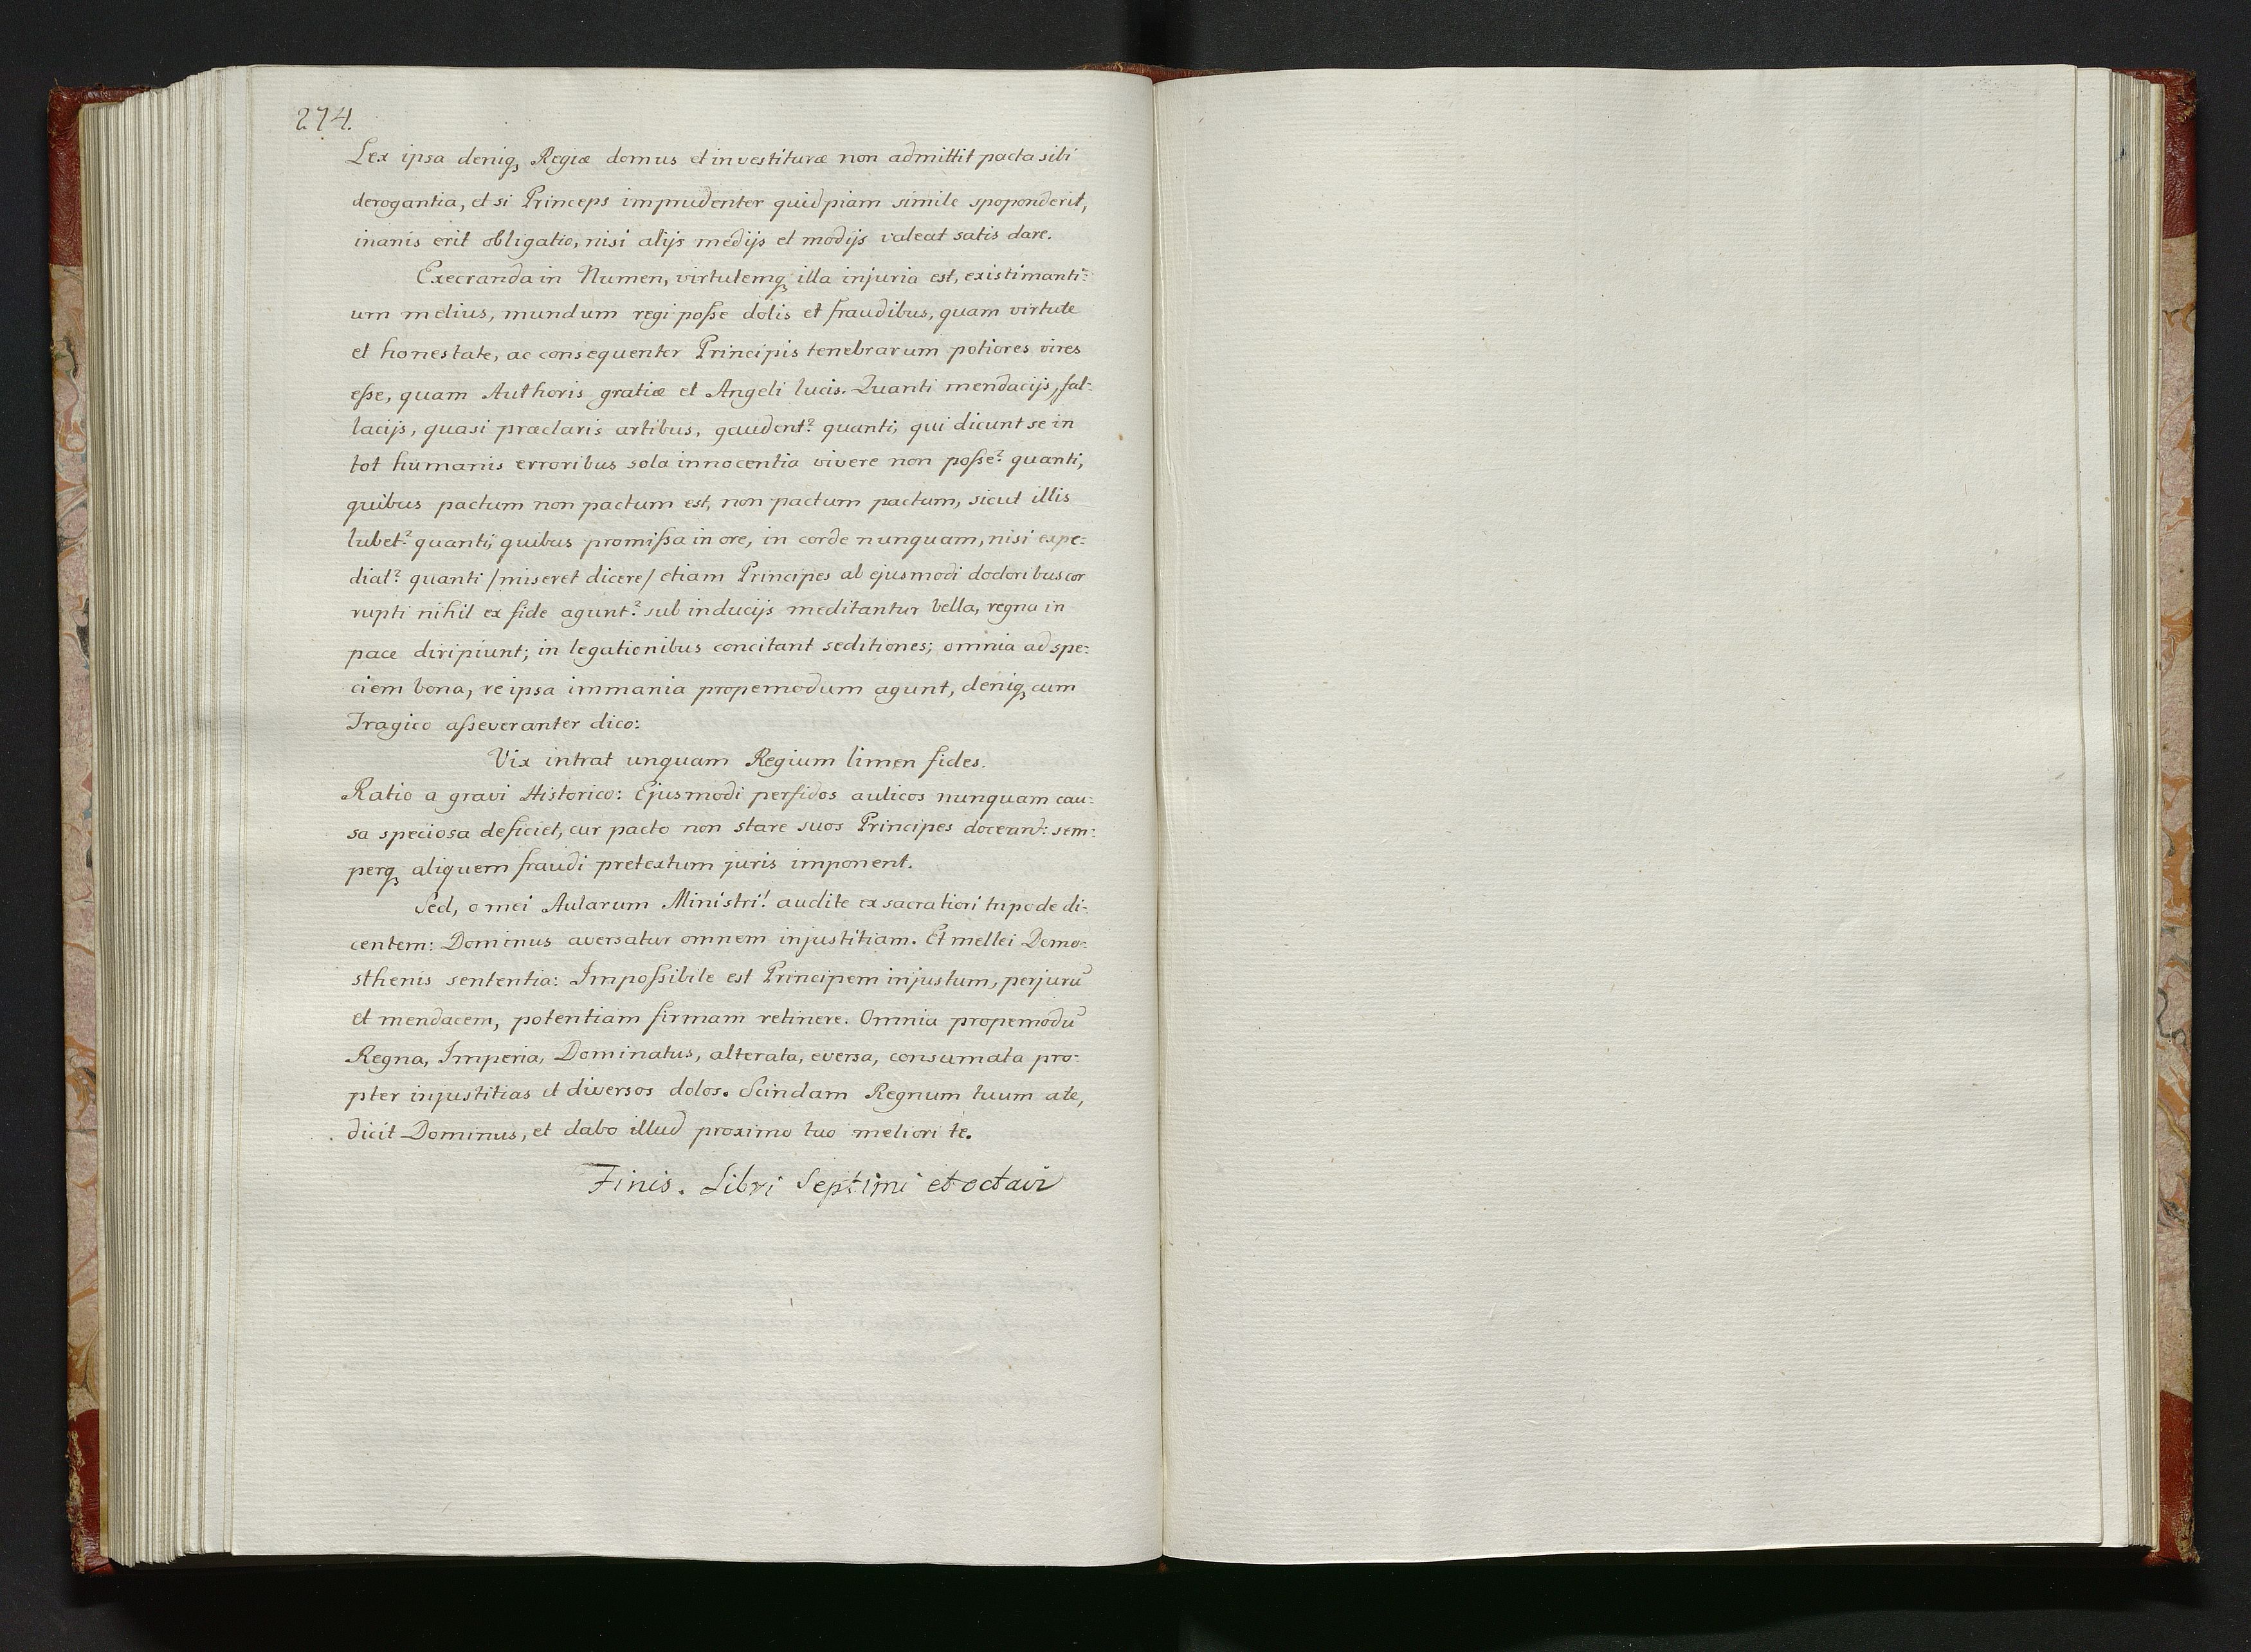 274.
Lex ipsa deniqꝫ Regiæ domus et investituræ non admittit pacta sibi
derogantia, et si Princeps imprudenter quidpiam simile spoponderit,
inanis erit obligatio, nisi alijs medijs et modijs valeat satis dare.
Execranda in Numen, virtutemqꝫ illa injuria est, existimanti-
um melius, mundum regi poſse dolis et fraudibus, quam virtute
et honestate, ac consequenter Principis tenebrarum potiores vires
eſse, quam Authoris gratiæ et Angeli lucis. Quanti mendacijs, fal-
lacijs, quasi præclaris artibus, gaudent? quanti, qui dicunt se in
tot humanis erroribus sola innocentia vivere non poſse? quanti,
quibus pactum non pactum est, non pactum pactum, sicut illis
lubet? quanti, quibus promiſsa in ore, in corde nunquam, nisi expe-
diat? quanti /miseret dicere/ etiam Principes ab ejusmodi doctoribus cor
rupti nihil ex fide agunt? sub inducijs meditantur bella, regna in
pace diripiunt; in legationibus concitant seditiones; omnia ad spe-
ciem bona, re ipsa immania propemodum agunt, deniqꝫ cum
Tragico aſseveranter dico:
Vix intrat unquam Regium limen fides.
Ratio a gravi Historico: Ejusmodi perfidos aulicos nunquam cau-
sa speciosa deficiet, cur pacto non stare suos Principes doceant: sem-
perqꝫ aliquem fraudi pretextum juris imponent.
Sed, o mei Aularum Ministri! audite ex sacratiori tripode di-
centem: Dominus aversatur omnem injustitiam. Et mellei Demo-
sthenis sententia: Impoſsibile est Principem injustum, perjurū
et mendacem, potentiam firmam retinere. Omnia propemodū
Regna, Imperia, Dominatus, alterata, eversa, consumata pro-
pter injustitias et diversos dolos. Scindam Regnum tuum a te,
dicit Dominus, et dabo illud proximo tuo meliori te.
Finis. Libri Septimi et octavi